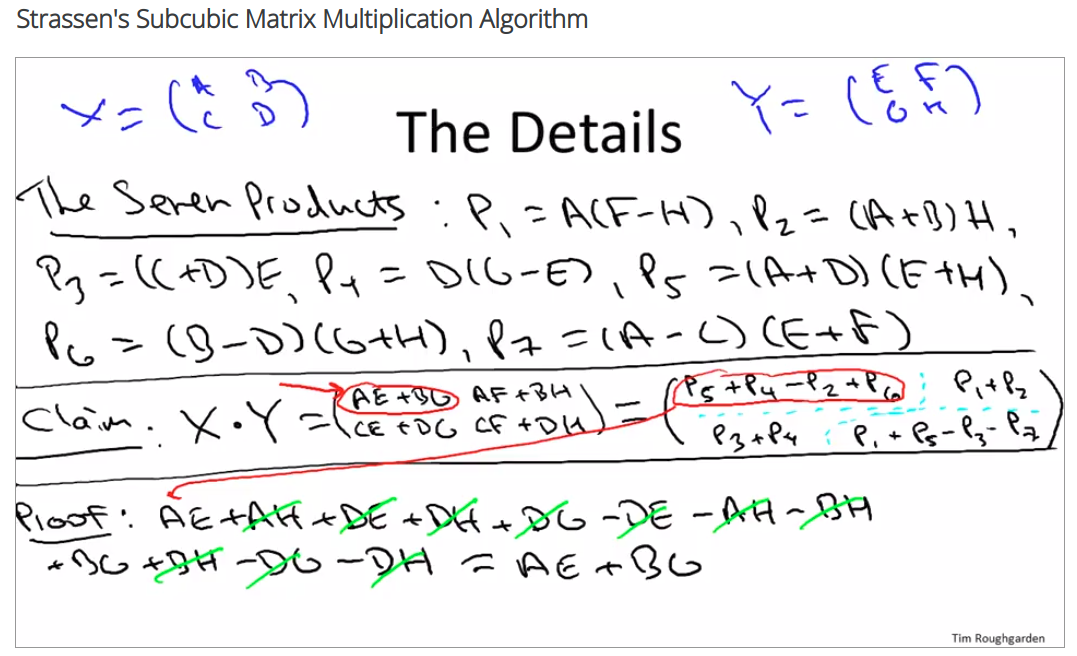 Strassen's Subcubic Matrix Multiplication Algorithm
X = (A B
C D)
The Details
Y = (E F
G H)
The Seven Products : P₁ = A(F-H), P₂ = (A+B)H,
P₃ = (C+D)E, P₄ = D(G-E), P₅ = (A+D)(E+H),
P₆ = (B-D)(G+H), P₇ = (A-C)(E+F)
Claim: X·Y = (AE+BG AF+BH
CE+DG CF+DH) = (P₅+P₄-P₂+P₆ P₁+P₂
P₃+P₄ P₁+P₅-P₃-P₇)
Proof: AE+AH+DE+DH+DG-DE-AH-BH
+BG+BH-DG-DH = AE+BG
Tim Roughgarden